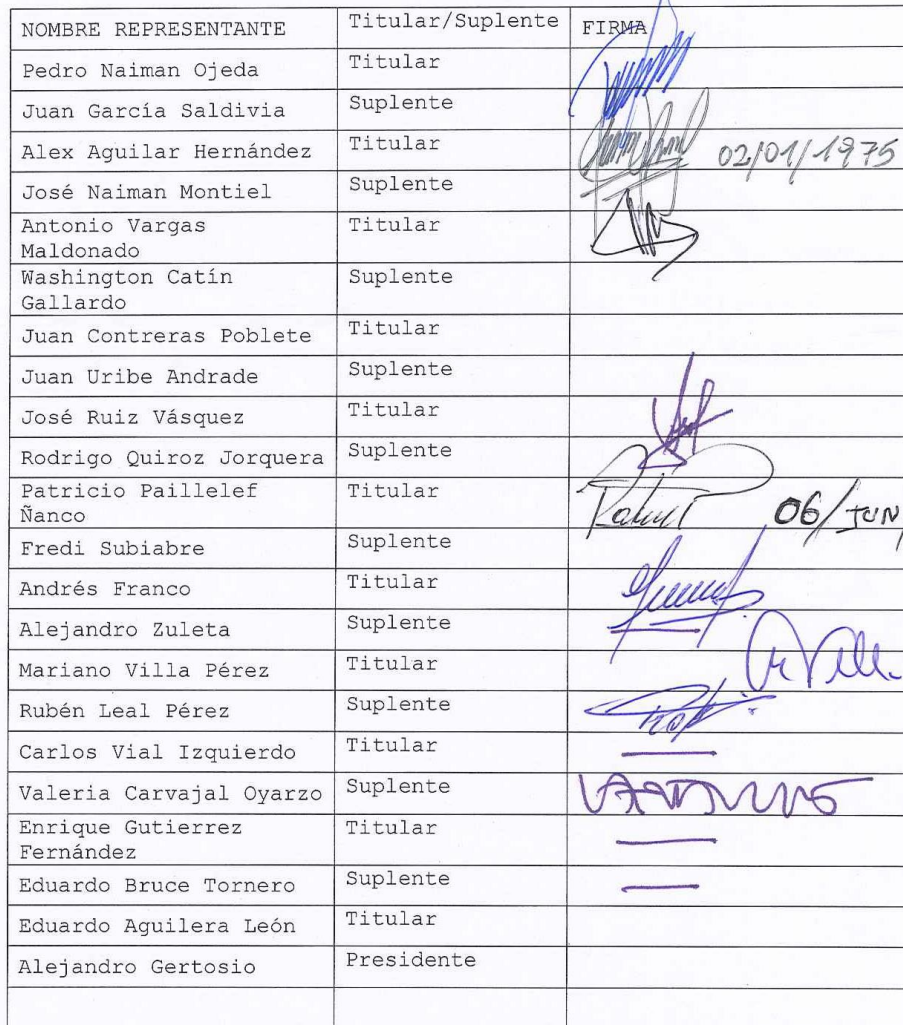 NOMBRE REPRESENTANTE Titular/Suplente FIRMA
Pedro Naiman Ojeda Titular
Juan García Saldivia Suplente
Alex Aguilar Hernández Titular 02/01/1975
José Naiman Montiel Suplente
Antonio Vargas Titular
Maldonado
Washington Catín Suplente
Gallardo
Juan Contreras Poblete Titular
Juan Uribe Andrade Suplente
José Ruiz Vásquez Titular
Rodrigo Quiroz Jorquera Suplente
Patricio Paillelef Titular 06/JUN
Ñanco
Fredi Subiabre Suplente
Andrés Franco Titular
Alejandro Zuleta Suplente
Mariano Villa Pérez Titular
Rubén Leal Pérez Suplente
Carlos Vial Izquierdo Titular
Valeria Carvajal Oyarzo Suplente
Enrique Gutierrez Titular
Fernández
Eduardo Bruce Tornero Suplente
Eduardo Aguilera León Titular
Alejandro Gertosio Presidente